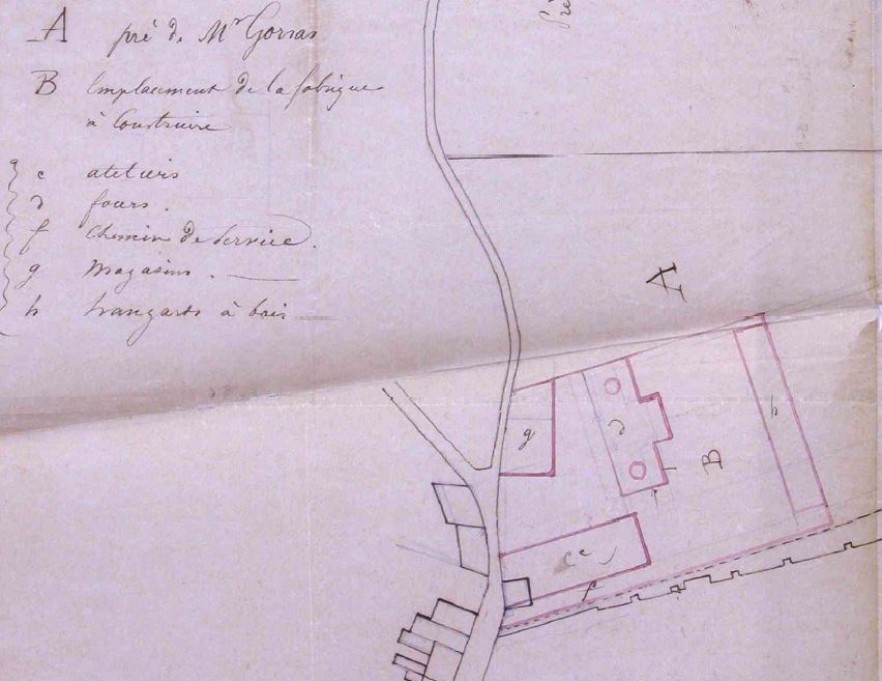 A pré de Mr Gorsas
B Emplacement de la fabrique
à Construire
c ateliers
d fours.
f Chemin de Service.
g Magasins.
h hangarts à bois
Pré
A
g
d
B
h
c
f